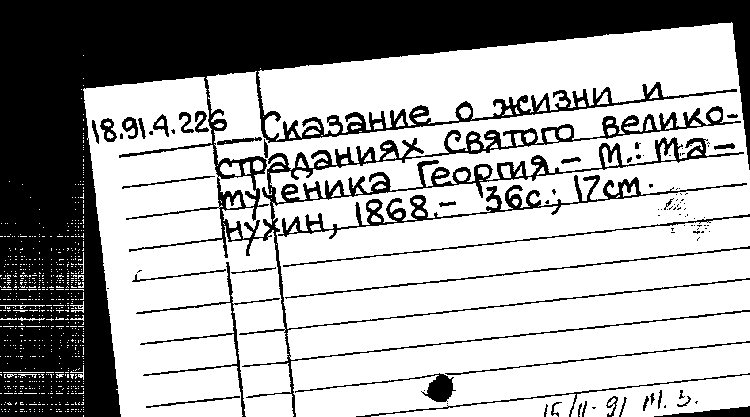 18.91.4.226 Сказание о жизни и
страданиях святого велико-
мученика Георгия.- М.: Ма-
нухин, 1868.- 36с.; 17см.
15/II-91 М.З.